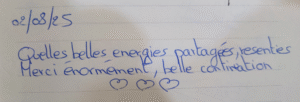 02/08/25
Quelles belles energies partagées, resenties
Merci énormément, belle continuation
♡ ♡ ♡